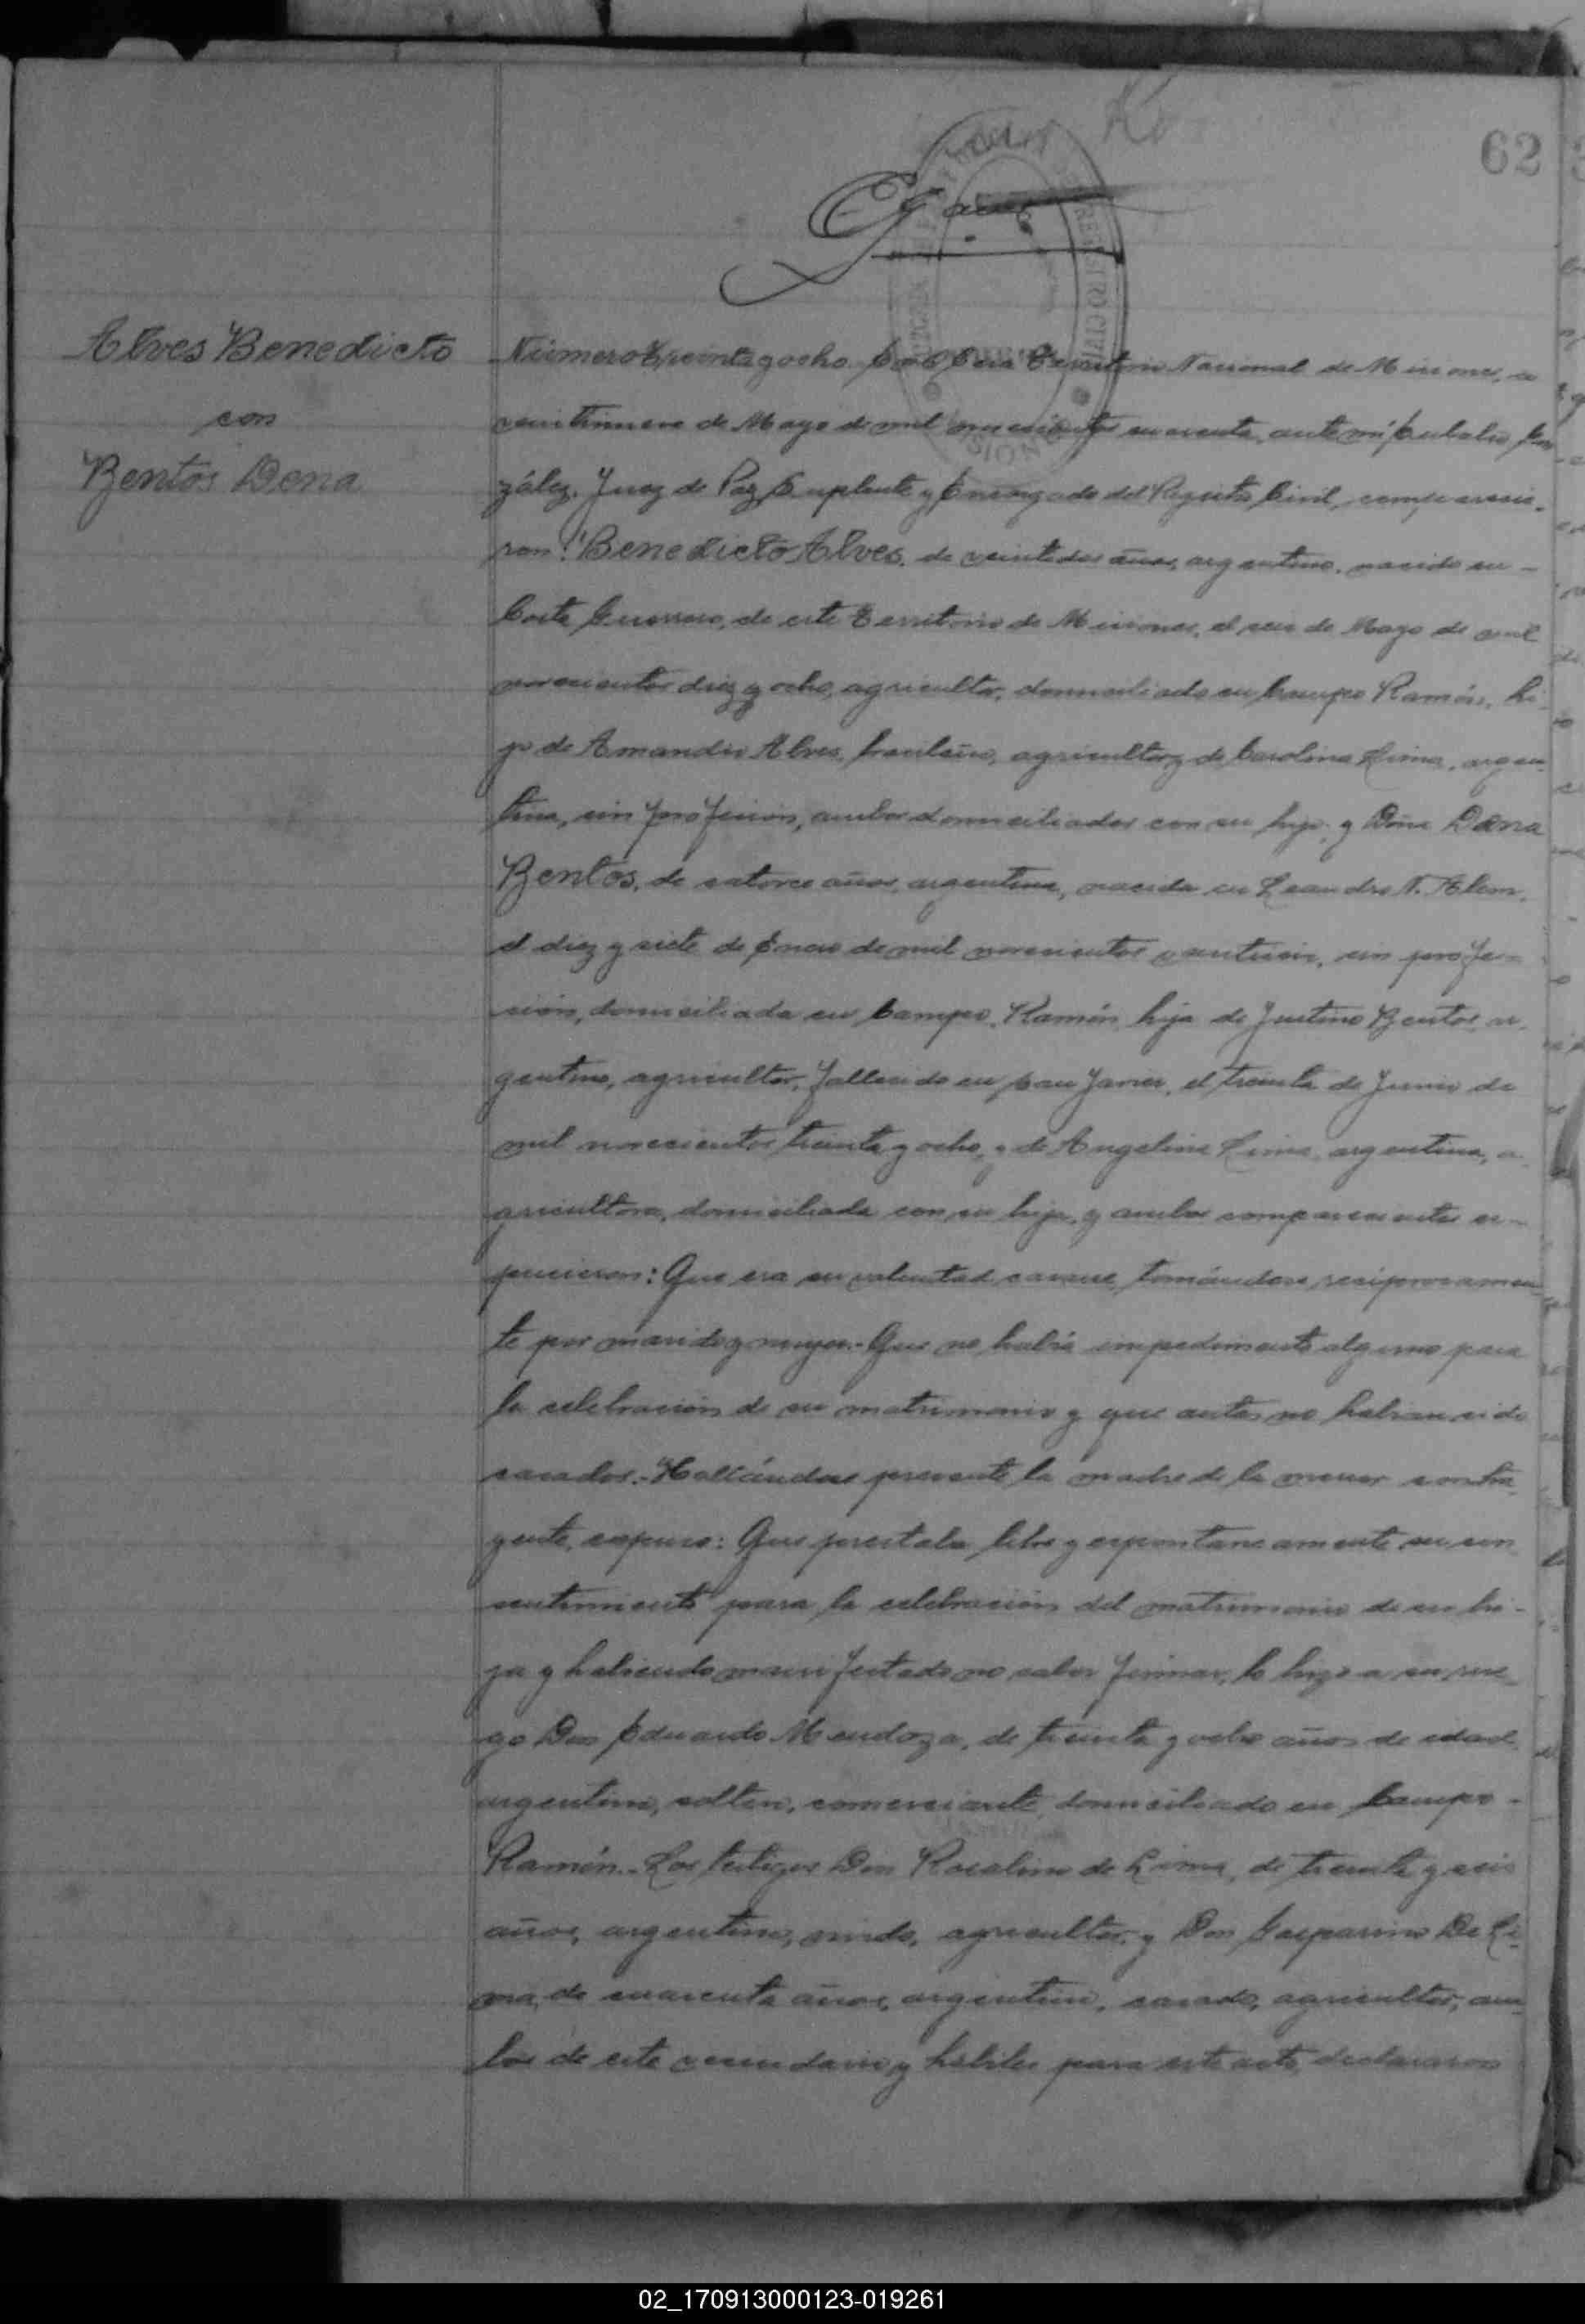 62
REGISTRO CIVIL
Alves Benedicto
con
Bentos Dena
Número treinta y ocho. En Territorio Nacional de Misiones, a
veintinueve de Mayo de mil novecientos cuarenta, ante mí Gon
zález, Juez de Paz Suplente y Encargado del Registro Civil, comparecie-
ron: Benedicto Alves, de veintidos años, argentino, nacido en -
Corte Guerrero, de este Territorio de Misiones, el seis de Mayo de mil
novecientos diez y ocho, agricultor, domiciliado en Campo Ramón, hi-
jo de Amandio Alves, brasileño, agricultor y de Carolina Lima, argen-
tina, sin profesión, ambos domiciliados con su hijo; y Doña Dena
Bentos, de catorce años, argentina, nacida en Leandro N. Alem,
el diez y siete de Enero de mil novecientos veintiseis, sin profe-
sión, domiciliada en Campo Ramón, hija de Justino Bentos, ar-
gentino, agricultor, fallecido en San Javier, el treinta de Junio de
mil novecientos treinta y ocho, y de Angelina Lima, argentina, a-
gricultora, domiciliada con su hija, y ambos comparecientes ex-
pusieron: Que era su voluntad casarse, tomándose recíprocamen-
te por marido y mujer.- Que no había impedimento alguno para
la celebración de su matrimonio y que antes no habian sido
casados.- Hallándose presente la madre de la menor contra-
yente, expuso: Que prestaba libre y espontaneamente su con-
sentimiento para la celebración del matrimonio de su hi-
ja y habiendo manifestado no saber firmar, lo hizo a su rue-
go Don Eduardo Mendoza, de treinta y ocho años de edad,
argentino, soltero, comerciante, domiciliado en Campo -
Ramón.- Los testigos Don Rosalino de Lima, de treinta y seis
años, argentino, viudo, agricultor, y Don Gasparino De Li-
ma, de cuarenta años, argentino, casado, agricultor, am-
bos de este vecindario y hábiles para este acto, declararon
02_170913000123-019261